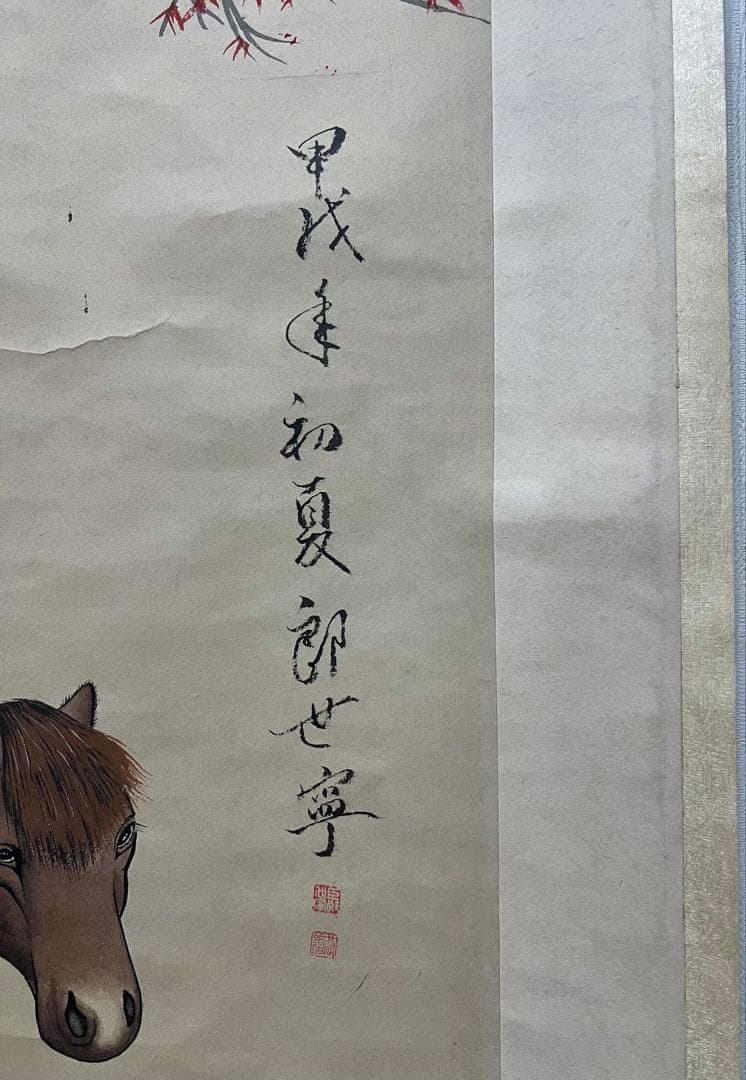 甲戌年初夏郎世寧